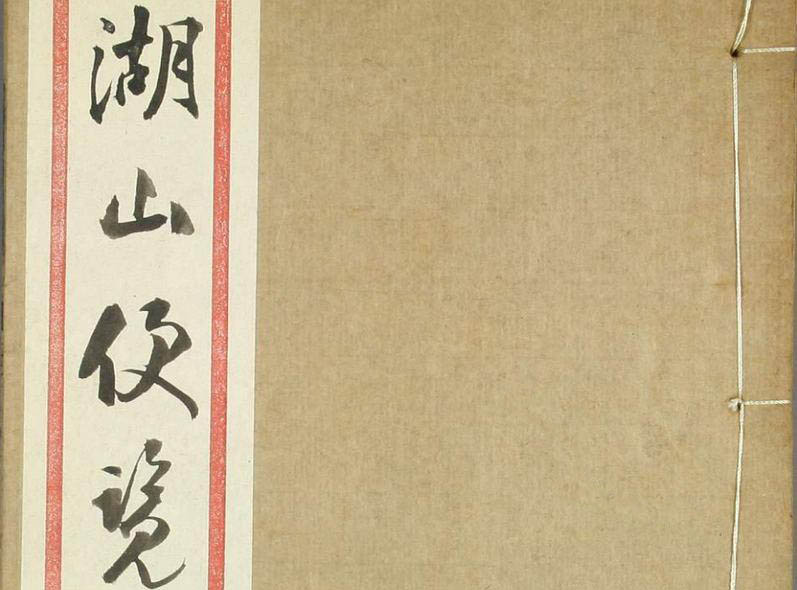 湖山便覽